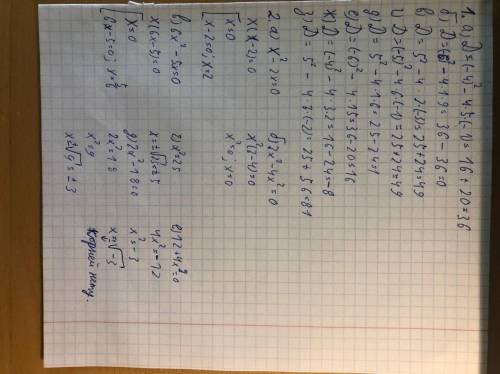 1. а) D = (-4)² - 4·5·(-1) = 16 + 20 = 36
б) D = (6)² - 4·1·9 = 36 - 36 = 0
в) D = 5² - 4·2·(-3) = 25 + 24 = 49
г) D = (-5)² - 4·6·(-1) = 25 + 24 = 49
д) D = 5² - 4·1·6 = 25 - 24 = 1
е) D = (-6)² - 4·1·5 = 36 - 20 = 16
ж) D = (-4)² - 4·3·2 = 16 - 24 = -8
з) D = 5² - 4·7·(-2) = 25 + 56 = 81
2. а) x² - 2x = 0
x(x-2) = 0
x = 0
x - 2 = 0; x = 2
б) x² - 4x² = 0
x²(1-4) = 0
x² = 0; x = 0
в) 6x² - 5x = 0
x(6x-5) = 0
x = 0
6x - 5 = 0; x = 5/6
г) x² = 25
x = ±√25 = ±5
д) 2x² - 18 = 0
2x² = 18
x² = 9
x = ±√9 = ±3
е) 12 + 4x² = 0
4x² = -12
x² = -3
x = ±√-3
Корней нету.